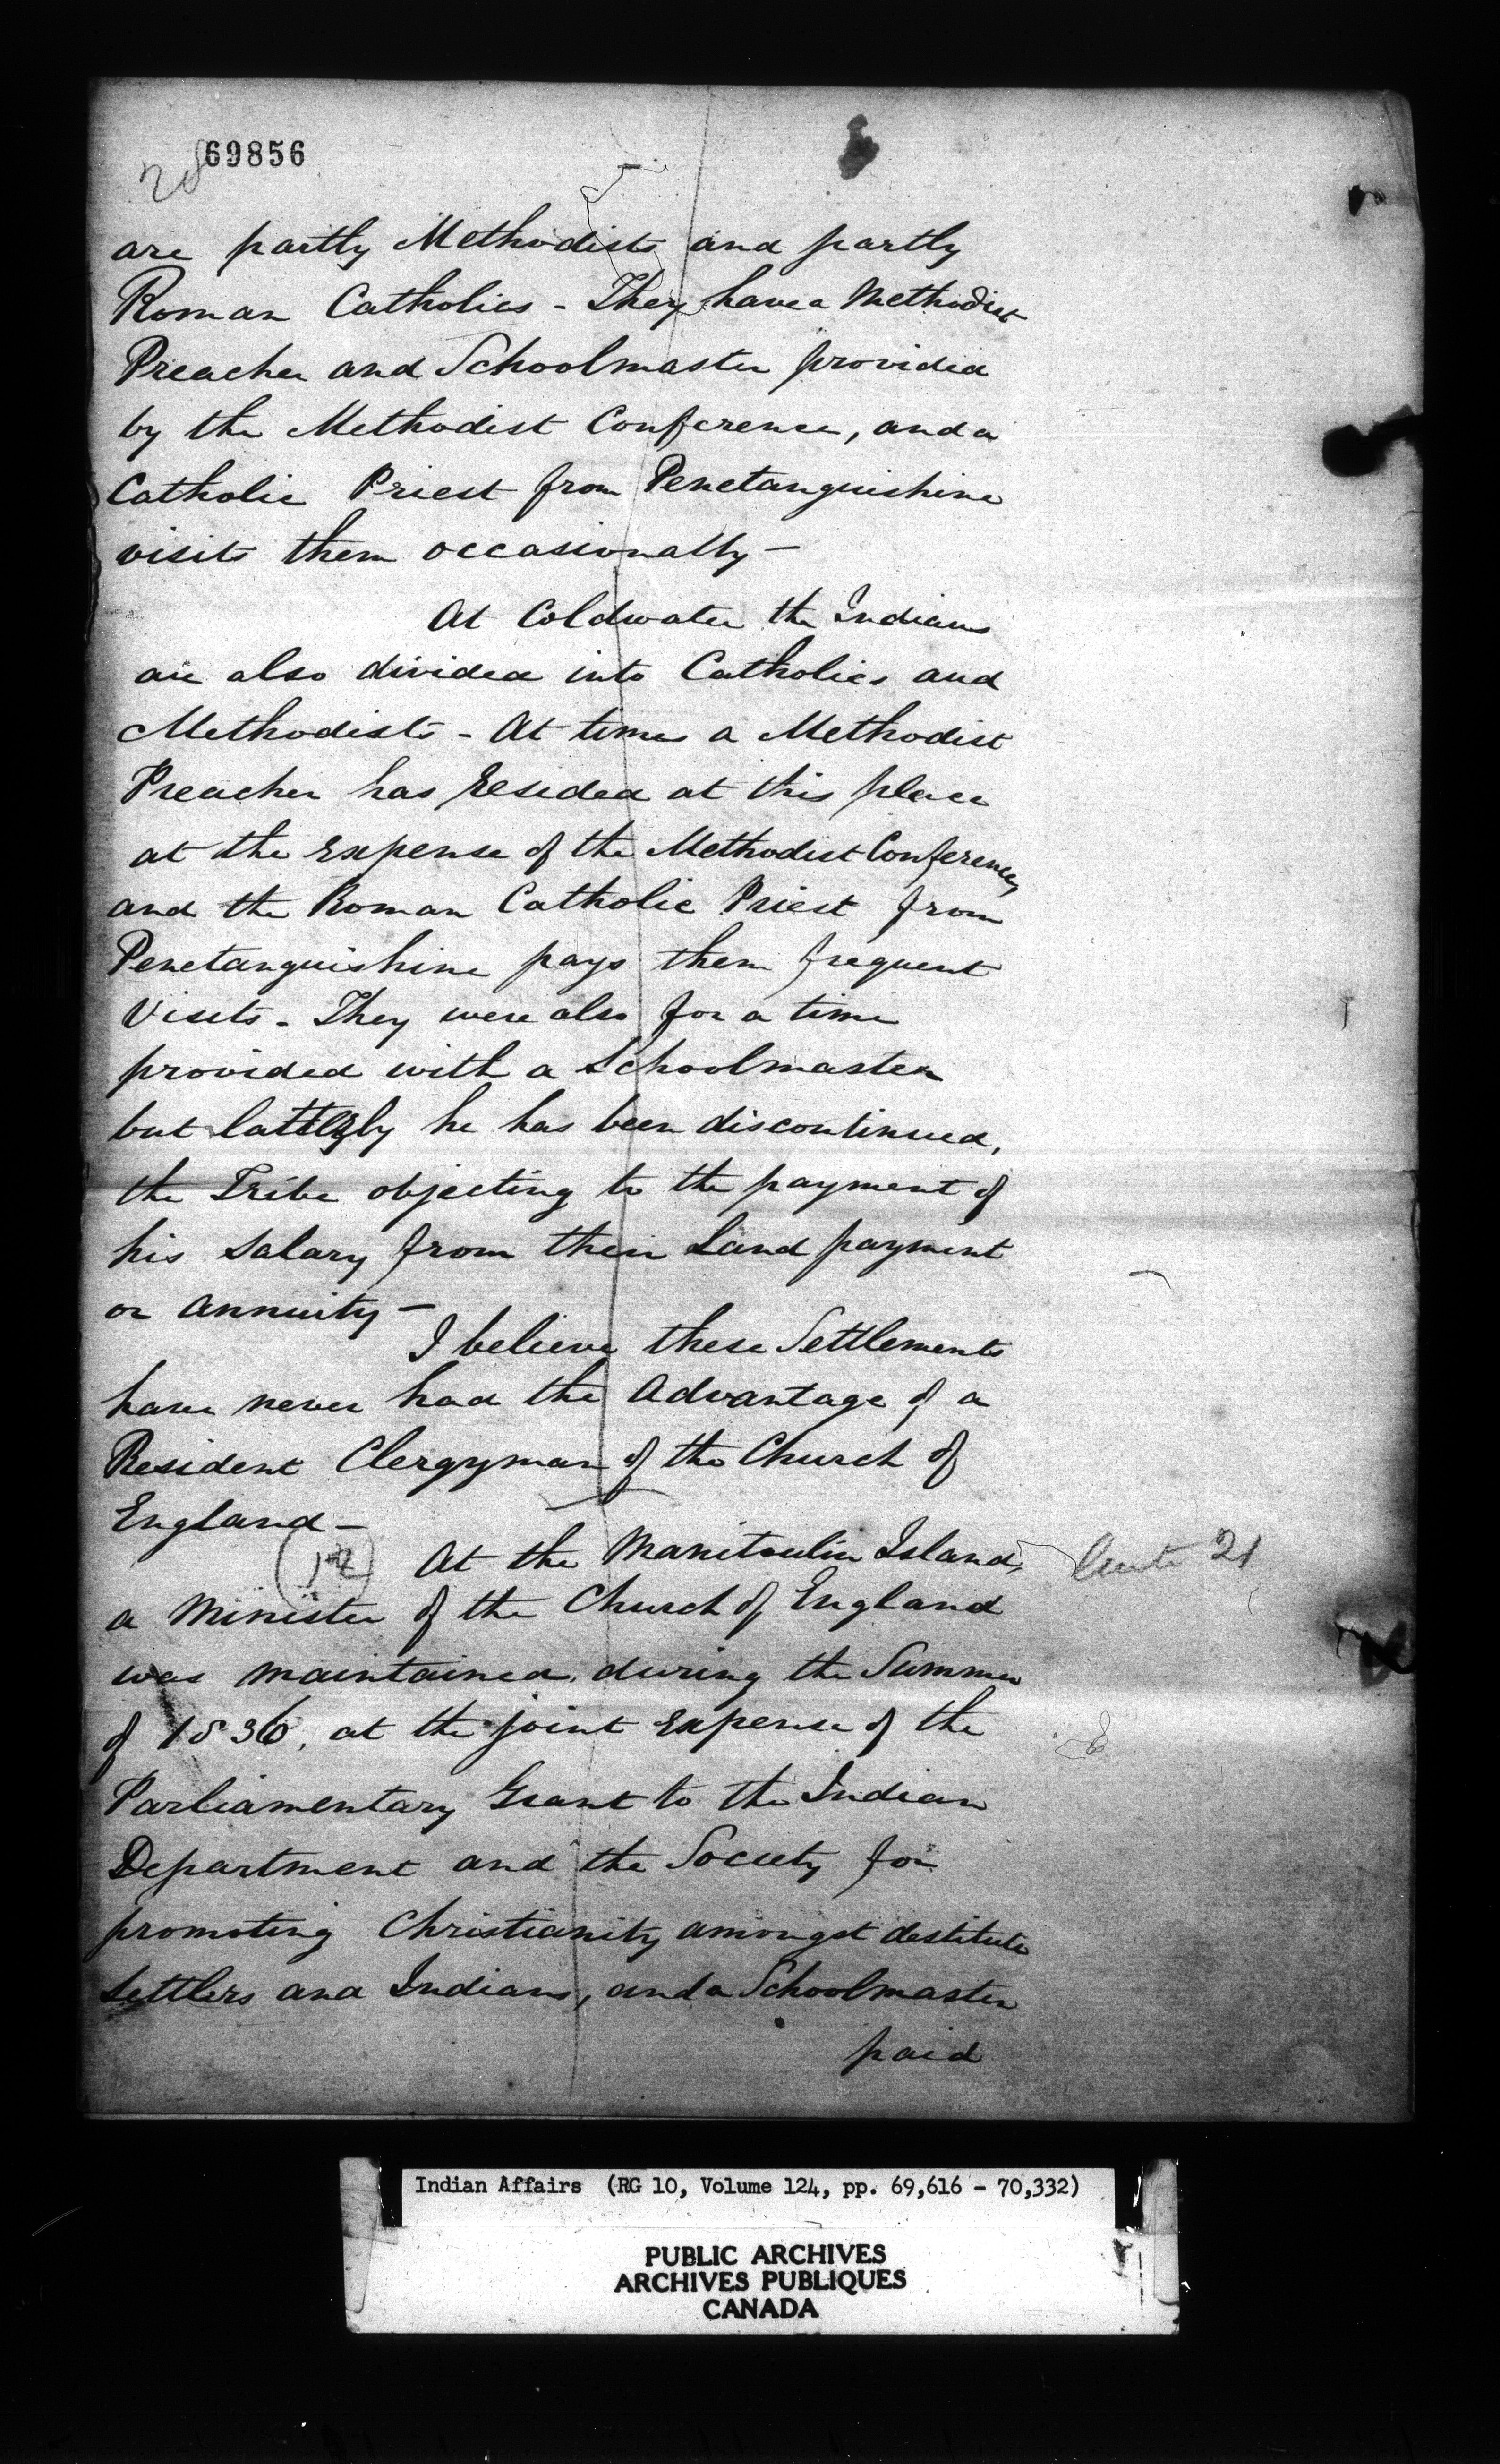 69856
28
are partly Methodists and partly
Roman Catholics - They have a Methodist
Preacher and Schoolmaster provided
by the Methodist Conference, and a
Catholic Priest from Penetanguishine
visits them occasionally -
At Coldwater the Indians
are also divided into Catholics and
Methodists - At times a Methodist
Preacher has resided at this place
at the expense of the Methodist Conference,
and the Roman Catholic Priest from
Penetanguishine pays them frequent
Visits - They were also for a time
provided with a Schoolmaster
but latterly he has been discontinued,
the Tribe objecting to the payment of
his Salary from their Land payment
or Annuity -
I believe these Settlements
have never had the Advantage of a
Resident Clergyman of the Church of
England -
At the Manitoulin Island, 21
a Minister of the Church of England
was maintained during the Summer
of 1836, at the joint expense of the
Parliamentary Grant to the Indian
Department and the Society for
promoting Christianity amongst destitute
Settlers and Indians, and a Schoolmaster
paid
Indian Affairs (RG 10, Volume 124, pp. 69,616 - 70,332)
PUBLIC ARCHIVES
ARCHIVES PUBLIQUES
CANADA